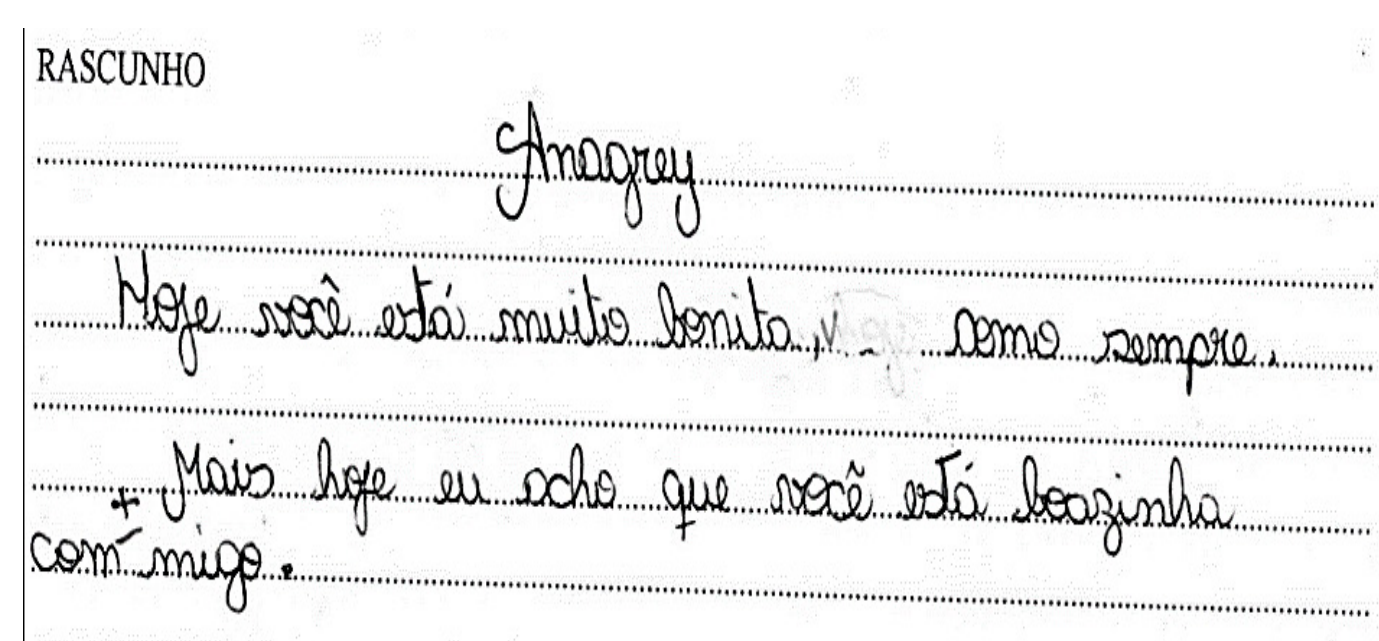 RASCUNHO
Anagrey
Hoje você está muito bonita, como sempre.
+ Mais hoje eu acho que você está boazinha
com migo.